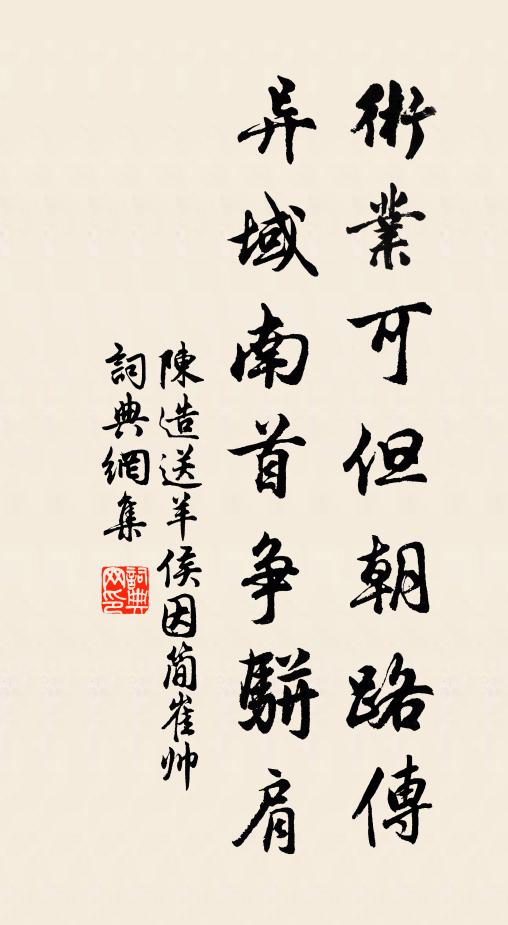 術業可但朝路傳
异域南首争駢肩
陳造送羊侯因簡崔帅
詞典網集
詞典网印